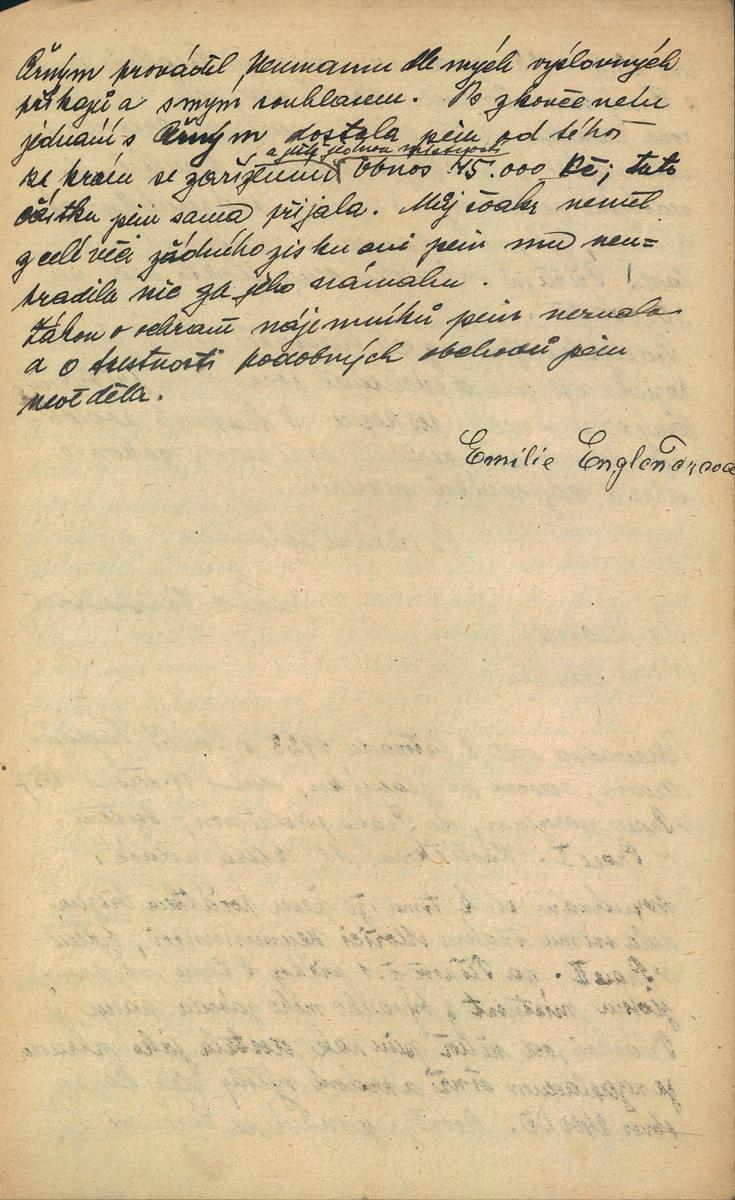 Černým prováděl Neumann dle mých výslovných
příkazů a s mým souhlasem. Po skončeném
jednání s Černým dostala jsem od téhož
za krám se zařízením a ještě jednou místností obnos 45.000 Kč; tuto
částku jsem sama přijala. Můj však neměl
z celé věci žádného zisku ani jsem mu neu=
hradila nic za jeho námahu.
Zákon o ochraně nájemníků jsem neznala
a o trestnosti podobných obchodů jsem
nevěděla.
Emilie Englenderová